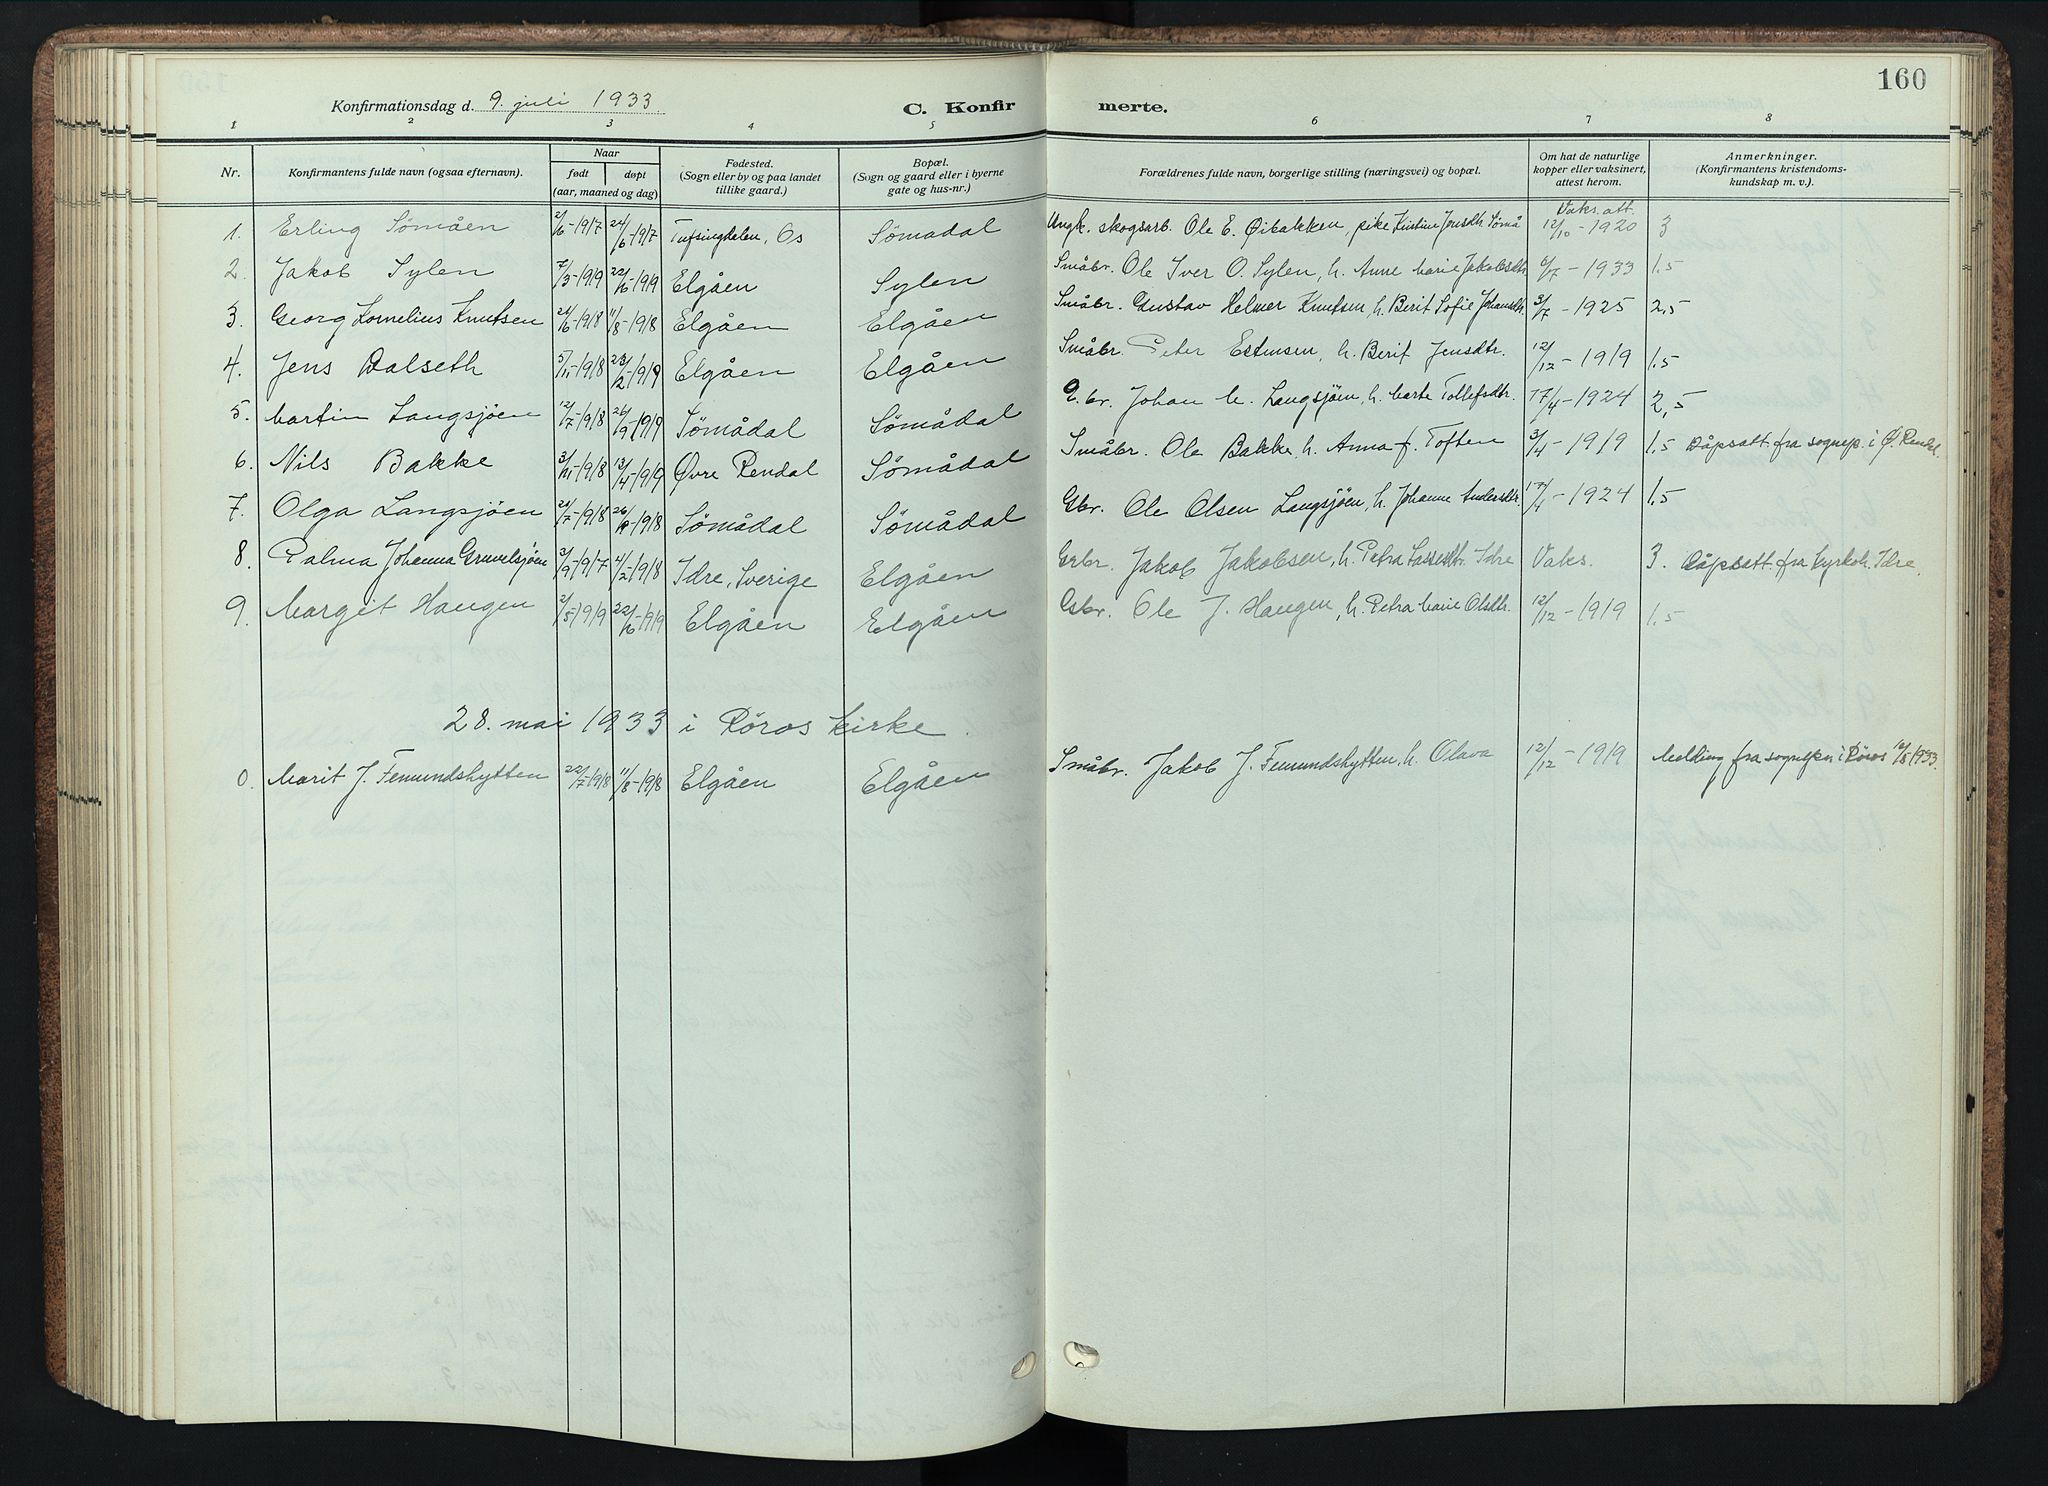 160
Konfirmationsdag d. 9. juli 1933
C. Konfirmerte.
1 2 3 4 5 6 7 8
Nr.
Konfirmantens fulde navn (ogsaa efternavn).
Naar
født døpt
(aar, maaned og dag)
Fødested.
(Sogn eller by og paa landet
tillike gaard.)
Bopæl.
(Sogn og gaard eller i byerne
gate og hus-nr.)
Forældrenes fulde navn, borgerlige stilling (næringsvei) og bopæl.
Om hat de naturlige
kopper eller vaksinert,
attest herom.
Anmerkninger.
(Konfirmantens kristendoms-
kundskap m. v.)
Vaks.att.
1. Erling Sömåen 2/6-1917 24/6-1917 Tufsingdalen, Os Sömadal Ungk. skogsarb. Ole E. Øibakken, pike Kristine Jensdtr. Sömå 12/10-1920 3
2. Jakob Sylen 7/3-1919 22/6-1919 Elgåen Sylen Småbr. Ole Iver O. Sylen, h. Anne Marie Jakobsdtr. 6/7-1933 1,5
3. Georg Kornelius Knutsen 21/6-1918 11/8-1918 Elgåen Elgåen Småbr. Gustav Helmer Knutsen, h. Berit Sofie Johansdtr. 3/7-1925 2,5
4. Jens Dalseth 5/11-1918 23/2-1919 Elgåen Elgåen Småbr. Peter Estensen, h. Berit Jensdtr. 12/12-1919 1,5
5. Martin Langsjöen 12/7-1918 26/9-1919 Sömådal Sömådal G.br. Johan M. Langsjöen, h. Marte Tollefsdtr. 17/4-1924 2,5
6. Nils Bakke 3/11-1918 13/4-1919 Øvre Rendal Sömådal Småbr. Ole Bakke, h. Anna f. Toften 3/4-1919 1,5 Dåpsatt. fra sognep. i Ø. Rendl.
7. Olga Langsjöen 21/7-1918 26/8-1918 Sömådal Sömådal Gbr. Ole Olsen Langsjöen, h. Johanne Andersdtr. 17/4-1924 1,5
8. Palma Johanna Gruvelsjöen 3/9-1917 4/2-1918 Idre, Sverige Elgåen Gbr. Jakob Jakobsen, h. Petra Lassesdtr. Idre Vaks. 3. Dåpsatt. fra kyrkoh. Idre.
9. Margit Haugen 2/5-1919 22/6-1919 Elgåen Elgåen Gbr. Ole J. Haugen, h. Petra Marie Olsdtr. 12/12-1919 1,5
28. mai 1933 i Röros kirke.
0. Marit J. Femundshytten 22/7-1918 11/8-1918 Elgåen Elgåen Småbr. Jakob J. Femundshytten, h. Olava 12/12-1919 Melding fra sognepr. i Röros 12/8 1933.